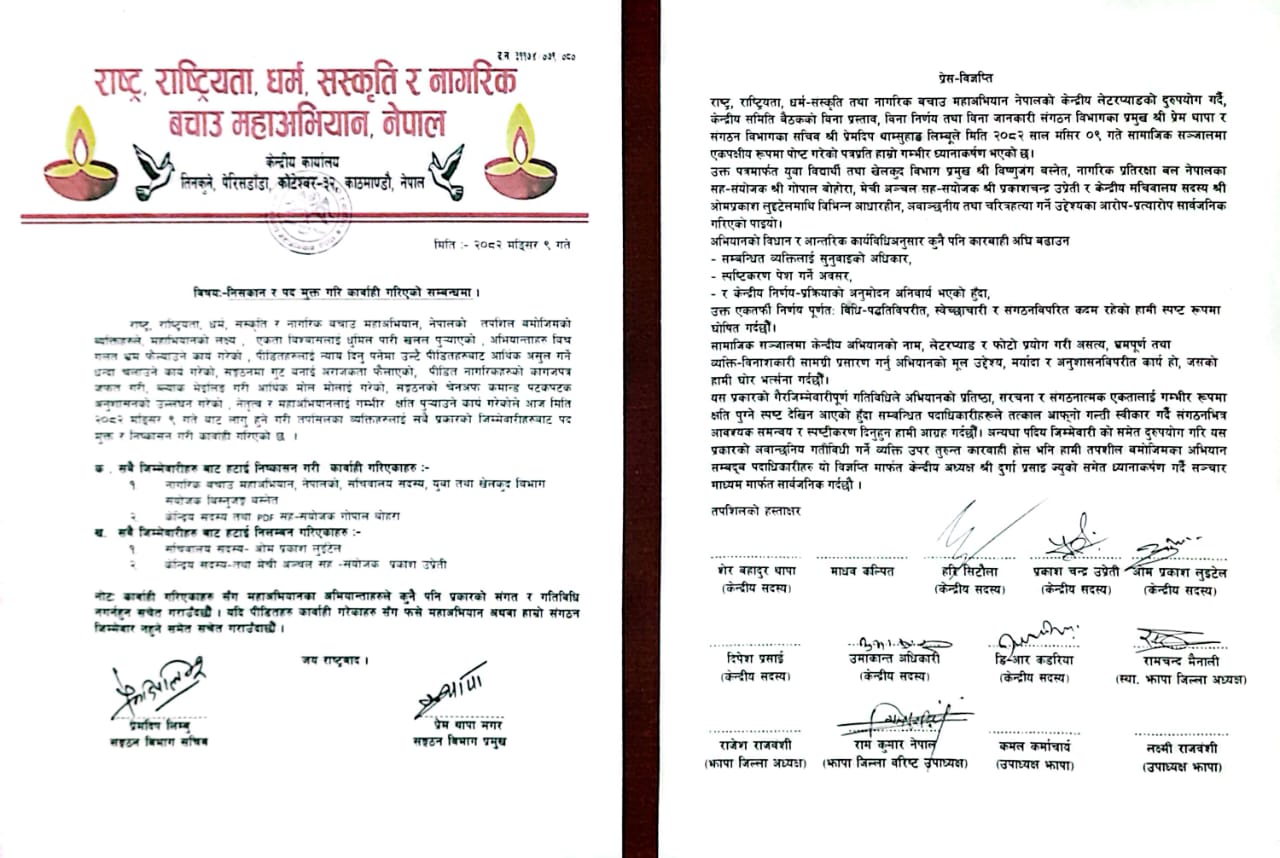 द.नं. ३११७४.०७९.०८०
राष्ट्र, राष्ट्रियता, धर्म, सस्कृति र नागरिक
बचाउ महाअभियान, नेपाल
केन्द्रीय कार्यालय
तिनकुने, पेरिसडाँडा, कोटेश्वर-३२, काठमाण्डौ, नेपाल
मिति :- २०८२ मङ्सिर ९ गते
विषय:-निसकान र पद मुक्त गरि कार्वाही गरिएको सम्बन्धमा ।
राष्ट्र, राष्ट्रियता, धर्म, सस्कृति र नागरिक बचाउ महाअभियान, नेपालको तपशिल बमोजिमका
ब्यक्तिहरुले, महाभियानको लक्ष्य , एकता विश्वासलाई धुमिल पारी खलल पुऱ्याएको , अभियान्ताहरु बिच
गलत भ्रम फैल्याउने कार्य गरेको , पीडितहरुलाई न्याय दिनु पर्नेमा उल्टै पीडितहरुबाट आर्थिक असुल गर्ने
धन्दा चलाउने कार्य गरेको, सङ्गठनमा गुट बनाई अराजकता फैलाएको, पीडित नागरिकहरुको कागजपत्र
जफत गरी, ब्ल्याक मेइलिङ गरी आर्थिक मोल मोलाई गरेको, सङ्गठनको चेनअफ कमाण्ड पटकपटक
अनुशासनको उल्लघन गरेको , नेतृत्व र महाअभियानलाई गम्भीर क्षति पुऱ्याउने कार्य गरेकोले आज मिति
२०८२ मङ्सिर ९ गते बाट लागु हुने गरी तपसिलका ब्यक्तिहरुलाई सबै प्रकारको जिम्मेवारीहरुबाट पद
मुक्त र निष्कासन गरी कार्वाही गरिएको छ ।
क . सबै जिम्मेवारीहरु बाट हटाई निष्कासन गरी कार्वाही गरिएकाहरु :-
१. नागरिक बचाउ महाअभियान, नेपालको, सचिवालय सदस्य, युवा तथा खेलकुद विभाग
संयोजक बिस्नुजङ्ग बस्नेत
२. केन्द्रिय सदस्य तथा PDF सह-संयोजक गोपाल बोहरा
ख. सबै जिम्मेवारीहरु बाट हटाई निलम्बन गरिएकाहरु :-
१. सचिवालय सदस्य- ओम प्रकाश लुइटेल
२. केन्द्रिय सदस्य-तथा मेची अञ्चल सह -संयोजक प्रकाश उप्रेती
नोट: कार्वाही गरिएकाहरु सँग महाअभियानका अभियान्ताहरुले कुनै पनि प्रकारको संगत र गतिविधि
नगर्नहुन सचेत गराउँदछौ । यदि पीडितहरु कार्वाही गरेकाहरु सँग फसे महाअभियान अथवा हाम्रो संगठन
जिम्मेवार नहुने समेत सचेत गराउँदाछौ ।
जय राष्ट्रवाद ।
प्रेमदिप लिम्बु
सङ्गठन विभाग सचिव
प्रेम थापा मगर
सङ्गठन विभाग प्रमुख
प्रेस-विज्ञप्ति
राष्ट्र, राष्ट्रियता, धर्म-संस्कृति तथा नागरिक बचाउ महाअभियान नेपालको केन्द्रीय लेटरप्याडको दुरुपयोग गर्दै,
केन्द्रीय समिति बैठकको विना प्रस्ताव, विना निर्णय तथा विना जानकारी संगठन विभागका प्रमुख श्री प्रेम थापा र
संगठन विभागका सचिव श्री प्रेमदिप थाम्सुहाङ लिम्बूले मिति २०८२ साल मंसिर ०९ गते सामाजिक सञ्जालमा
एकपक्षीय रूपमा पोष्ट गरेको पत्रप्रति हाम्रो गम्भीर ध्यानाकर्षण भएको छ।
उक्त पत्रमार्फत युवा विद्यार्थी तथा खेलकुद विभाग प्रमुख श्री विष्णुजंग बस्नेत, नागरिक प्रतिरक्षा बल नेपालका
सह-संयोजक श्री गोपाल बोहोरा, मेची अञ्चल सह-संयोजक श्री प्रकाशचन्द्र उप्रेती र केन्द्रीय सचिवालय सदस्य श्री
ओमप्रकाश लुइटेलमाथि विभिन्न आधारहीन, अवाञ्छनीय तथा चरित्रहत्या गर्ने उद्देश्यका आरोप-प्रत्यारोप सार्वजनिक
गरिएको पाइयो।
अभियानको विधान र आन्तरिक कार्यविधिअनुसार कुनै पनि कारबाही अघि बढाउन
- सम्बन्धित व्यक्तिलाई सुनुवाइको अधिकार,
- स्पष्टिकरण पेश गर्ने अवसर,
- र केन्द्रीय निर्णय-प्रक्रियाको अनुमोदन अनिवार्य भएको हुँदा,
उक्त एकतर्फी निर्णय पूर्णतः विधि-पद्धतिविपरीत, स्वेच्छाचारी र संगठनविपरित कदम रहेको हामी स्पष्ट रूपमा
घोषित गर्दछौँ।
सामाजिक सञ्जालमा केन्द्रीय अभियानको नाम, लेटरप्याड र फोटो प्रयोग गरी असत्य, भ्रमपूर्ण तथा
व्यक्ति-विनाशकारी सामग्री प्रसारण गर्नु अभियानको मूल उद्देश्य, मर्यादा र अनुशासनविपरीत कार्य हो, जसको
हामी घोर भर्त्सना गर्दछौँ।
यस प्रकारको गैरजिम्मेवारीपूर्ण गतिविधिले अभियानको प्रतिष्ठा, संरचना र संगठनात्मक एकतालाई गम्भीर रूपमा
क्षति पुग्ने स्पष्ट देखिन आएको हुँदा सम्बन्धित पदाधिकारीहरूले तत्काल आफ्नो गल्ती स्वीकार गर्दै संगठनभित्र
आवश्यक समन्वय र स्पष्टीकरण दिनुहुन हामी आग्रह गर्दछौँ। अन्यथा पदिय जिम्मेवारी को समेत दुरुपयोग गरि यस
प्रकारको अवान्छनिय गतीविधी गर्ने व्यक्ति उपर तुरुन्त कारवाही होस भनि हामी तपशील बमोजिमका अभियान
सम्बद्व पदाधिकारीहरु यो विज्ञप्ति मार्फत केन्द्रीय अध्यक्ष श्री दुर्गा प्रसाइ ज्युको समेत ध्यानाकर्षण गर्दै सञ्चार
माध्यम मार्फत सार्वजनिक गर्दछौ ।
तपशिलको हस्ताक्षर
शेर बहादुर थापा माधव कल्पित हरि सिटौला प्रकाश चन्द्र उप्रेती ओम प्रकाश लुइटेल
(केन्द्रीय सदस्य) (केन्द्रीय सदस्य) (केन्द्रीय सदस्य) (केन्द्रीय सदस्य)
दिपेश प्रसाई उमाकान्त अधिकारी डि-आर कडरिया रामचन्द मैनाली
(केन्द्रीय सदस्य) (केन्द्रीय सदस्य) (केन्द्रीय सदस्य) (स्था. झापा जिल्ला अध्यक्ष)
राजेश राजवंशी राम कुमार नेपाल कमल कर्माचार्य लक्ष्मी राजवंशी
(झापा जिल्ला अध्यक्ष) (झापा जिल्ला वरिष्ट उपाध्यक्ष) (उपाध्यक्ष झापा) (उपाध्यक्ष झापा)